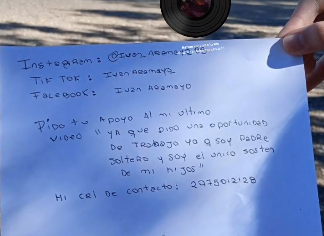 Instagram: @Ivan Aramayo
TIK TOK: Ivan Aramayo
FaceBOOK: Ivan Aramayo
Pido tu Apoyo Al mi ultimo
video " ya que pido una oportunidad
De TRABAJO ya q soy PADRE
Soltero y soy el unico sosten
De mi Hijos"
Mi cel De contacto: 2975012128